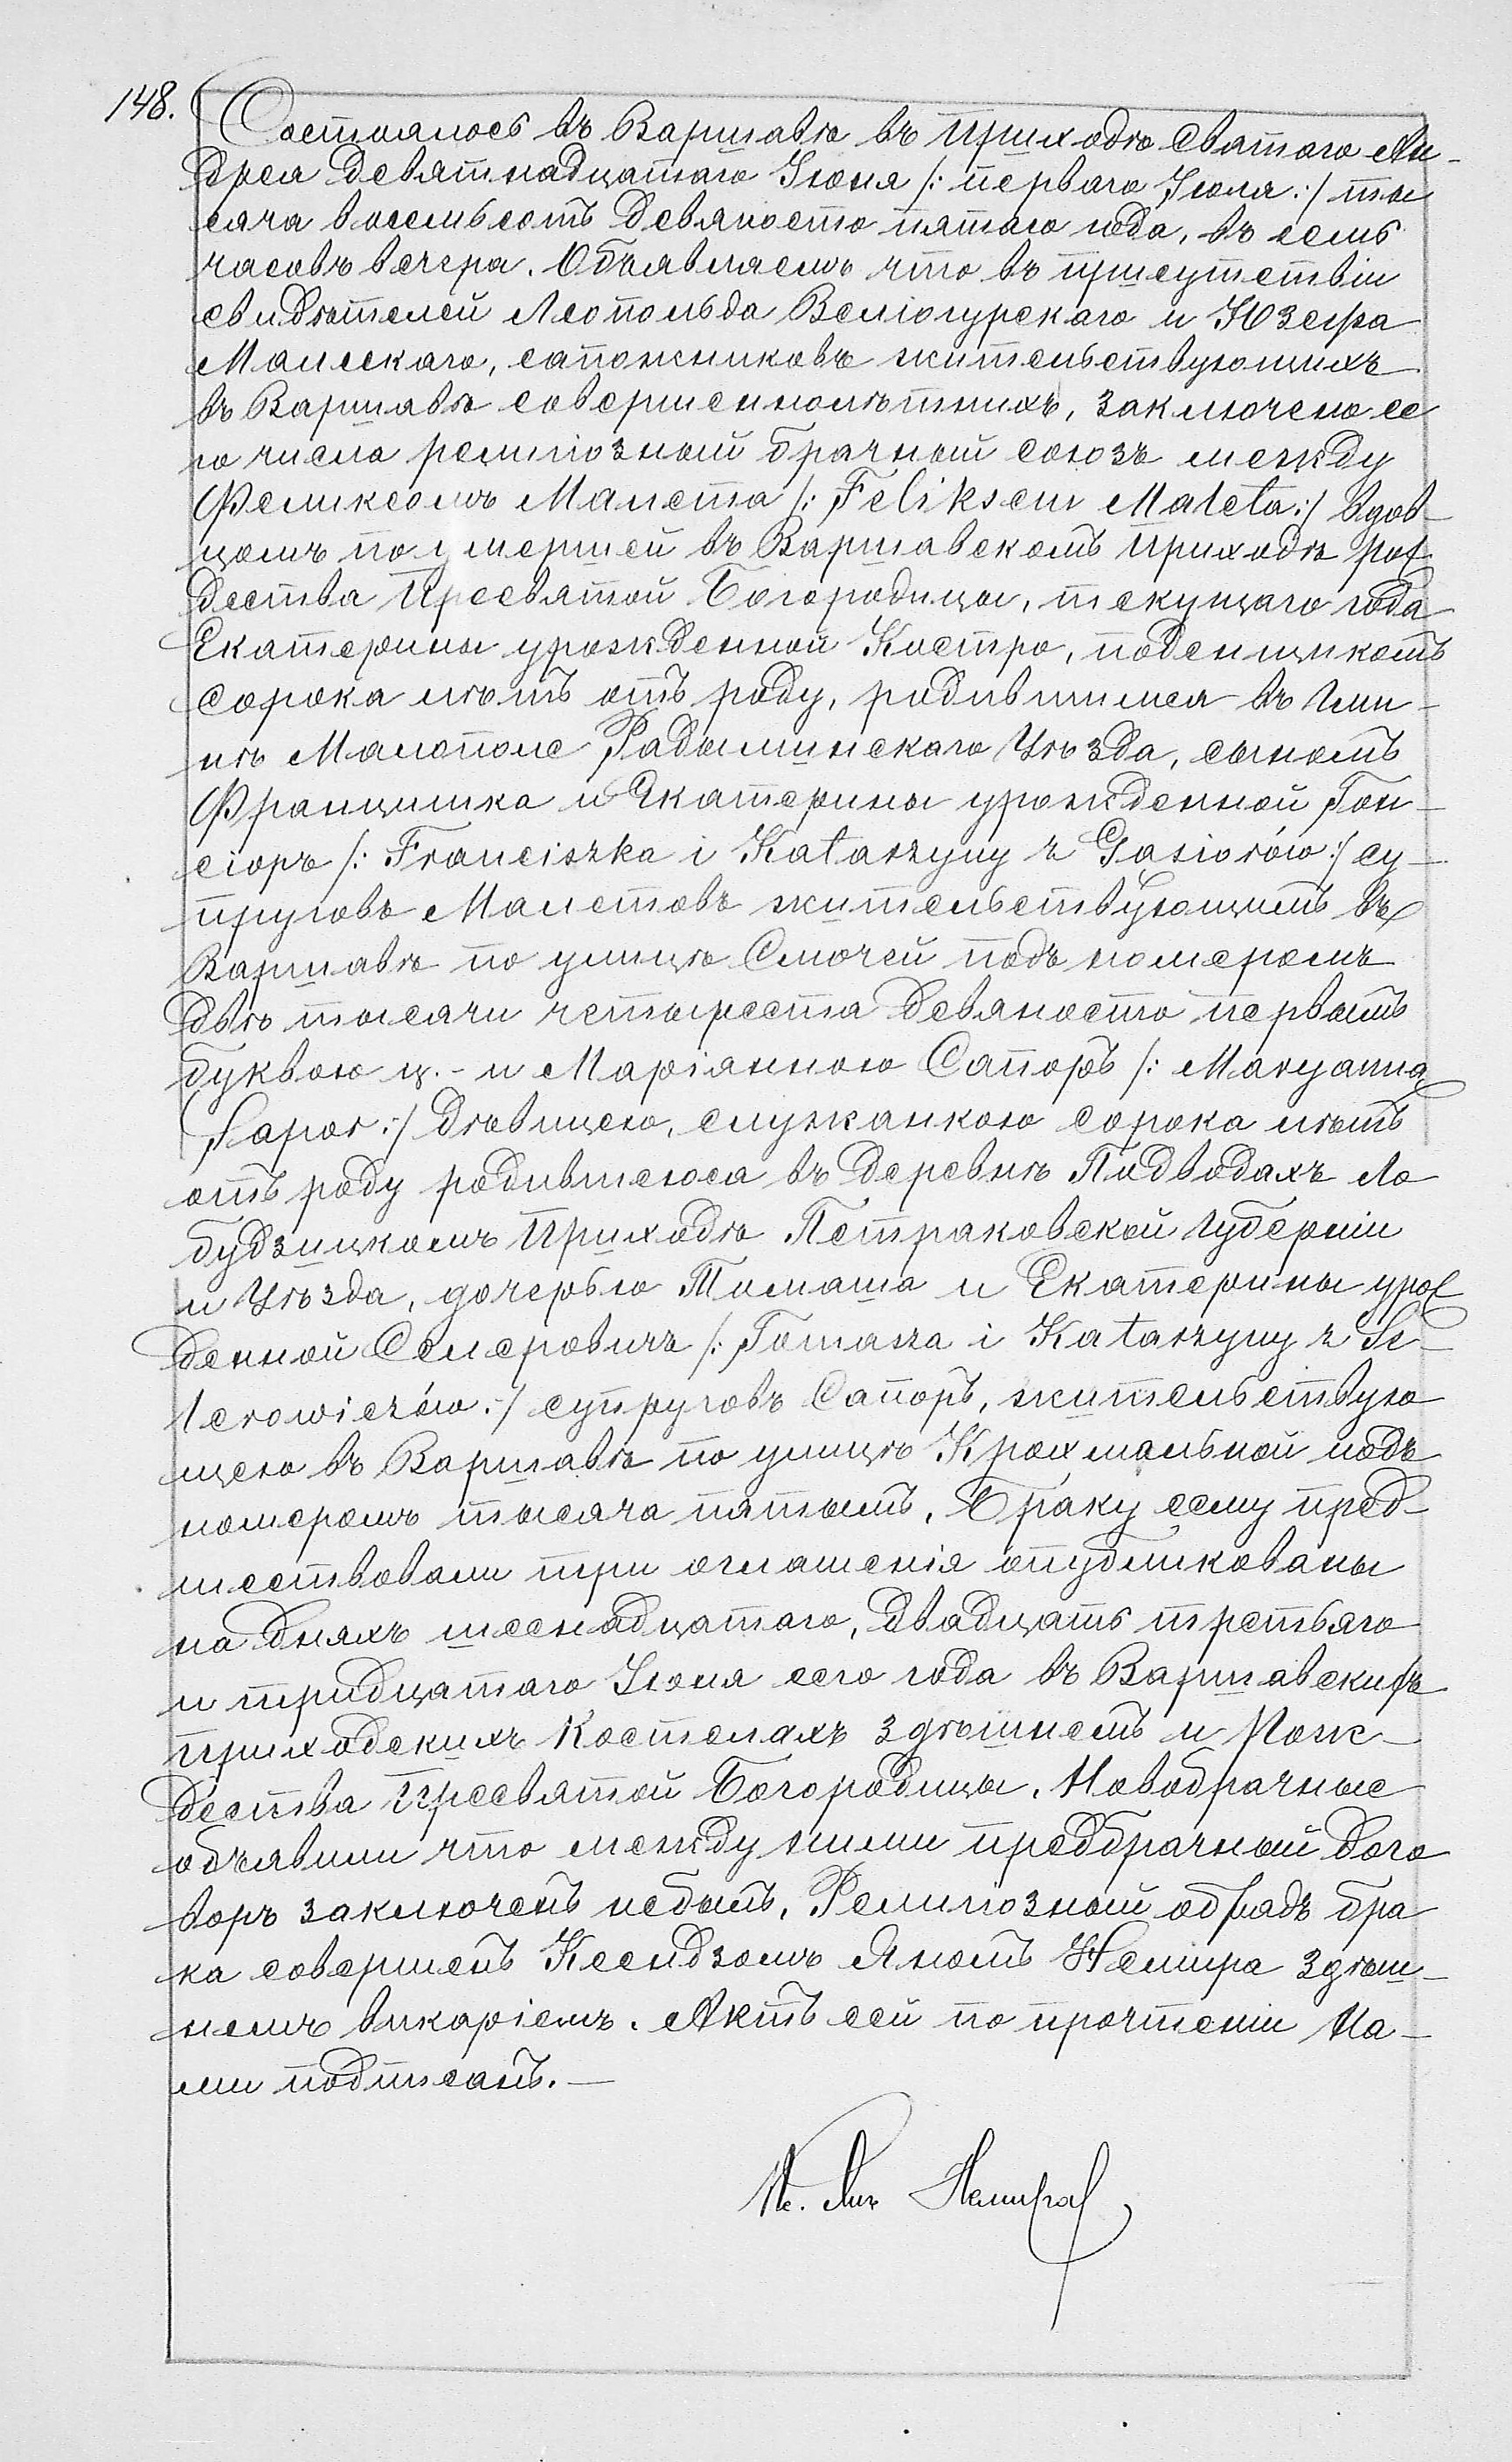 148. Состоялось въ Варшавѣ въ приходѣ Святаго Ан-
дрея девятнадцатаго Іюня /: перваго Іюля :/ ты
сяча восемьсотъ девяносто пятаго года, въ семь
часовъ вечера. Объявляемъ что въ присутствіи
свидѣтелей Леопольда Велiогурскаго и Юзефа
Малескаго, сапожниковъ жительствующихъ
въ Варшавѣ совершеннолѣтнихъ, заключено се
го числа религіозный брачный союзъ между
Феликсомъ Малета /: Feliksem Maleta :/ вдов-
цомъ по умершей въ Варшавскомъ приходѣ рож
дества Пресвятой Богородицы, текущаго года
Екатерины урожденной Костро, поденщикомъ
сорока лѣтъ отъ роду, родившимся въ гми-
нѣ Малополе Радыминскаго Уѣзда, сыномъ
Францишка и Екатерины урожденной Гон-
сіоръ /: Franciszka i Katarzyny z Gąsiorów :/ су-
пруговъ Малетовъ жительствующимъ въ
Варшавѣ по улицѣ Смочей подъ номеромъ
двѣ тысячи четыреста девяносто первымъ
буквою ц. - и Маріянною Сапоръ /: Maryanną
Sapor :/ дѣвицею, служанкою сорока лѣтъ
отъ роду родившеюся въ деревнѣ Подводахъ Ло
будзицкомъ приходѣ Петраковской губерніи
и Уѣзда, дочерью Томаша и Екатерины урож
денной Селеровичъ /: Tomasza i Katarzyny z Se-
lerowiczów :/ супруговъ Сапоръ, жительствую
щею въ Варшавѣ по улицѣ Крохмальной подъ
номеромъ тысяча пятымъ. Браку сему пред-
шествовали три оглашенія опубликованы
на дняхъ шеснадцатаго, двадцать третьяго
и тридцатаго Іюня сего года въ Варшавскихъ
приходскихъ костелахъ здѣшнемъ и Рож-
дества Пресвятой Богородицы. Новобрачные
объявили что между ними предбрачный дого
воръ заключенъ небылъ. Религіозный обрядъ бра
ка совершенъ Ксендзомъ Яномъ Немира здѣш-
немъ викаріемъ. Актъ сей по прочтеніи На-
ми подписанъ. —
Кс. Янъ Немира